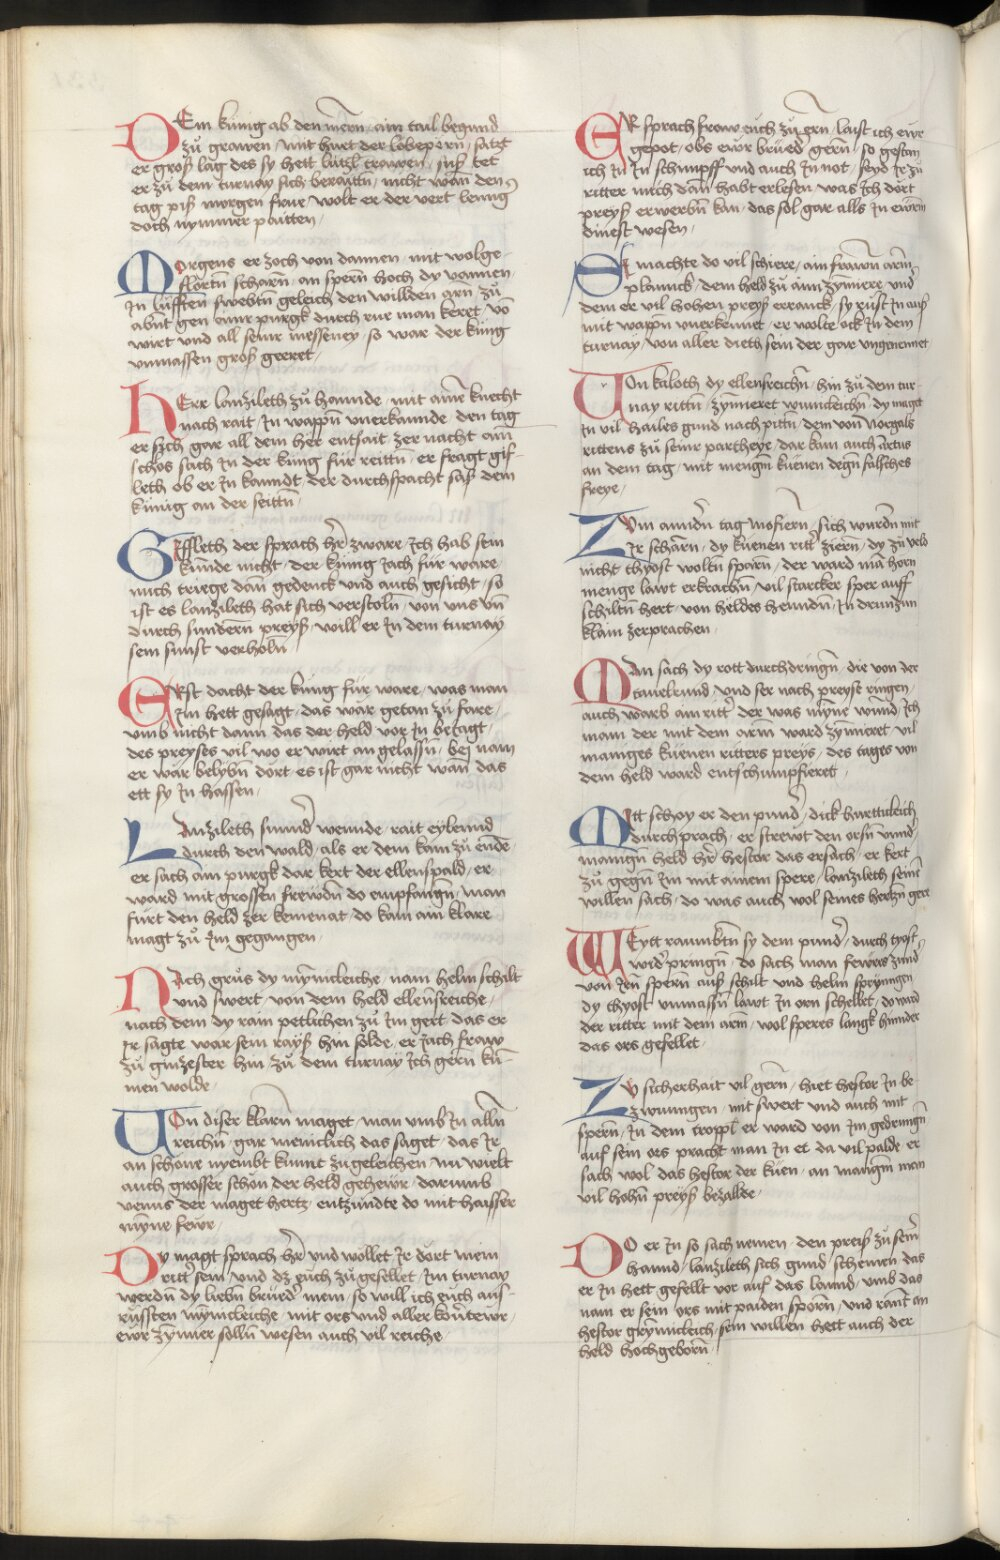 DEm künig ab den mern ain tail begund
zů grawen / mit hurt der lobepern / satzt
er groß lag des sy hett lützl trawen / suß tet
er zů dem turnay sich beraittn / nicht wan den
tag piß morgen frue / wolt er der vert leng
doch nymmer paitten /
MOrgens er zoch von dannen / mit wolge-
flortn scharn / an spern hoch dy vannen /
In lüfften swebtn geleich den willden arn / zů
abnt gen ainr purgk durch rue man keret / vo
wirt und all seinr messeney / so war der küng
unmassen groß geeret /
HErr lanzileth zů hannde / mit aim knecht
nach rait / In wappn unerkannde / den tag
er sich gar all dem her entsait / zer nacht ann
schos sach In der küng für reittn / er fragt gif-
leth ob er In kanndt / der durchspacht saß dem
künig an der seittn /
GIffleth der sprach her zware / Ich hab sein
künde nicht / der künig Jach für ware /
mich triege dan gedenck und auch gesicht / so
ist es lanzileth hat sich verstoln / von uns un
durch sundern preyß / will er In dem turnay
sein sunst verholn /
ERst dacht der küng für ware / was man
Im hett gesagt / das war getan zu fare /
umb nicht dann das der held vor In betagt /
des preyses vil wo er wirt an gelassn / bej nam
er wär belybn dort es ist gar nicht wan das
ett sy In hassen /
LAnzileth sunnder wennde / rait eylennd
durch den wald / als er dem kam zů ende /
er sach ain purgk dar kert der ellenspald / er
ward mit grossen frewdn do empfangn / man
fürt den held zer kemenat / do kam ain klare
magt zů Im gegangen /
NAch grůs dy mynicleiche / nam helm schilt
und swert / von dem held ellensreiche /
nach dem dy rain petlichen zů Im gert / das er
Ir sagte war sein rayß hin solde / er Jach frow
zů ginzester hin zů dem turnay Ich gern kü-
men wolde /
VOn diser klarn maget / man umb In alln
reichn / gar menicklich das saget / das Ir
an schöne nyembt kunnt zů geleichen / nu wielt
auch grosser schön der held geheur / darumb
venus der maget hertz / entzündte do mit haisser
myne fewr /
DY magt sprach her und wollet Ir dort mein
ritter sein / und dz euch zů gesellet / Im turnay
werdn dy liebn brüder mein / so will ich euch auß-
rüssten mynicleiche / mit ors und aller kovertewr /
ewr zymier solln wesen auch vil reiche /
ER sprach frow euch zů ern / laist ich ewr
gepot / obs ewr brüed gern / so gestan
ich In In schimpff und auch In not / seyd Ir zu
ritter mich dan habt erlesen / was Ich dort
preyß erwerbn kan / das sol gar alls In ewrm
dinest wesen /
SI machte do vil schiere / ain frawen arm
plannck / dem held zů ainn zymiere / und
dem er vil hohen preyß erranck / sy rüst In auß
mit wappn unerkennet / er wolte ock In dem
turnay / von aller dieth sein der gar ungenennet
VOn kaloth dy ellensreichn / hin zů dem tur-
nay rittn / zymieret wunicleichn / dy maget
In vil hailes gund nach pittn / dem von norgals
rittens zů seinr partheye / dar kam auch artus
an dem tag / mit mengm küenen degn falsches
freye /
ZUm anndn tag mosiern / sich wurdn mit
Ir scharn / dy küenen ritter ziern / dy zů veld
nicht thyost woltn sparn / der ward ma horn
menge lawt erkrachn / vil starcker sper auff
schiltn hert / von heldes henndn / In drunzun
klain zerprachen /
MAn sach dy rott durchdringn / die von der
tavelrund / und ser nach preyse ringen /
auch warb ain ritter der was myne wund / Ich
main der mit dem arm ward zymieret / vil
maniges küenen ritters preys / des tages von
dem held ward entschumpfieret /
MItt schoy er den punder / dick hurtticleich
durchprach / er strewt den orsn under
manign held / her hestor das ersach / er kert
zů gegn Im mit ainem spere / lanzileth seinn
willen sach / do was auch wol seines hertzn gere
WEytt raumbtn sy dem punder / durch tyost
wider pringn / do sach man fewrs zund
von Irn spern auß schilt und helm spryngen /
dy thyost unmassn lawt In orn schellet / do ward
der ritter mit dem arm / wol speres langk hinnder
das ors gefellet /
ZU sicherhait vil gern / hiet hestor In be-
zwungen / mit swert und auch mit
spern / In dem troppl er ward von Im gedrungn
auf sein ors pracht man In et da vil palde / er
sach wol das hestor der küen / an mangm man
vil hohn preyß bezallde /
DO er In so sach nemen / den preiß zu seinr
hannd / lanzileth sich gund schemen / das
er In hett gefellt vor auf das lannd / umb das
nam er sein ors mit paiden sporn / und rant an
hestor grymicleich / sein willen hett auch der
held hochgeborn /